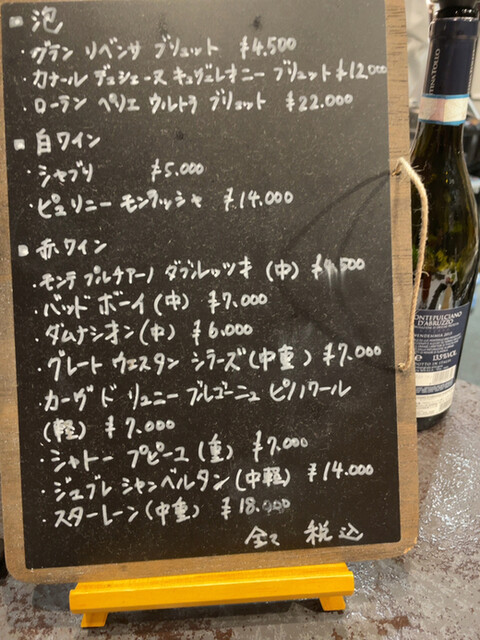 ▪ 泡
・グラン リベンサ ブリュット ¥4.500
・カナール デュシェーヌ キュヴェレオニー ブリュット ¥12,000
・ローラン ペリエ ウルトラ ブリュット ¥22.000
▪ 白ワイン
・シャブリ ¥5.000
・ピュリニー モンラッシャ ¥14.000
▪ 赤ワイン
・モンテ プルチアーノ ダブルッツオ (中) ¥4,500
・バッド ボーイ (中) ¥7.000
・ダムナシオン (中) ¥6.000
・グレート ウェスタン シラーズ (中重) ¥7.000
・カーヴ ド リュニー ブルゴーニュ ピノノワール
(軽) ¥7.000
・シャトー プピーユ (重) ¥7.000
・ジュブレ シャンベルタン (中軽) ¥14.000
・スターレーン (中重) ¥18.000
全て 税込
MONTEPULCIANO
D'ABRUZZO